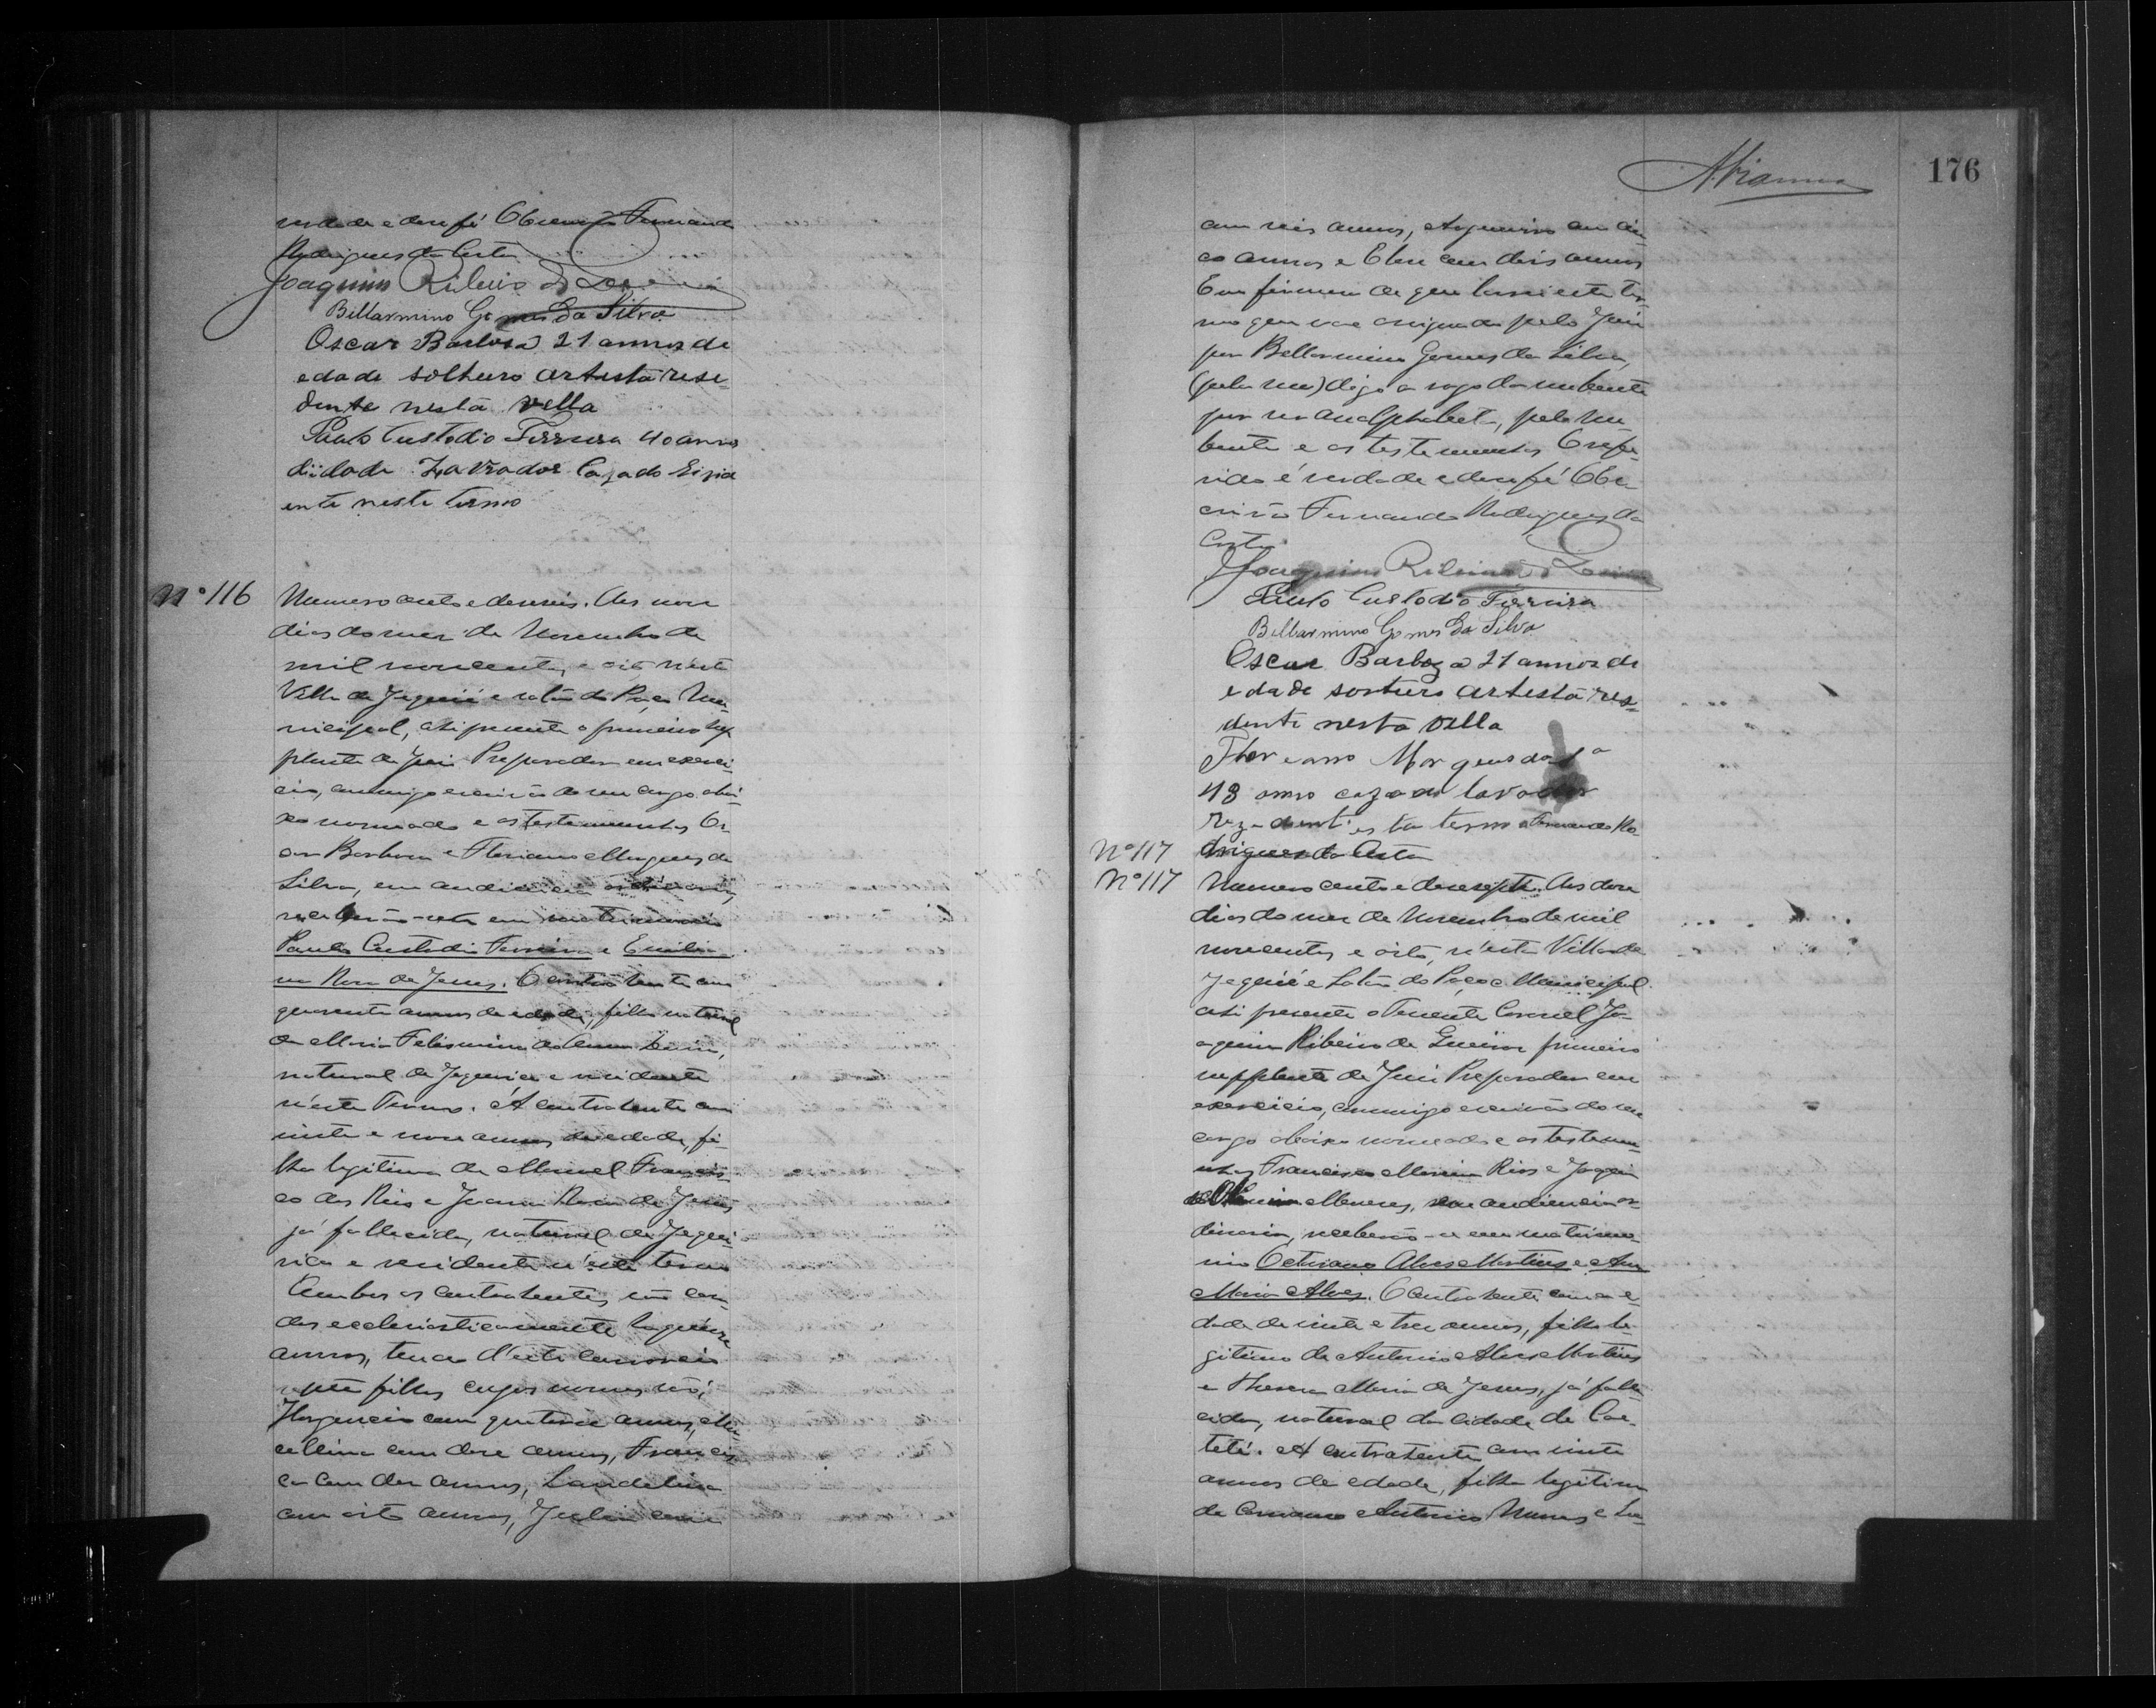 verdade e dou fé O Escrivão Fernando
Rodrigues da Costa
Joaquim Ribeiro de
Bellarmino Gomes Da Silva
Oscar Barbosa 21 annos de
edade solteiro artista resi-
dente nesta villa
Paulo Custodio Ferreira 40 annos
diidade Lavrador Cazado Rizid
ente neste termo
Nº 116
Numero cento e deseseis. Aos nove
dias do mez de Novembro de
mil novecentos e oito n'esta
Villa de Jequié e salão do Paço Mu-
nicipal, ahi presente o primeiro sup
plente de Juiz Preparador em exerci-
cio, commigo escrivão do seu cargo abai-
xo nomeado e as testemunhas Os-
car Barbosa e Floriano Marques da
Silva, em audiencia ordinaria,
receberão-se em matrimonio
Paulo Custodio Ferreira e Emilia-
na Rosa de Jesus. O contrahente com
quarenta annos de edade, filho natural
de Maria Felismina
natural de Jequiriçá e residente
n'este Termo. A contrahente com
vinte e nove annos de edade, fi-
lha legitima de Manoel Francis-
co dos Reis e Joanna Rosa de Jesus
já fallecida, natural de Jequi-
riçá e residente n'este termo
Ambos os contrahentes são casa-
dos ecclesiasticamente ha quinze
annos, tendo d'este consorcio
sete filhos cujos nomes são:
com quatorze annos, Mar-
cellina com doze annos, Francis-
ca com dez annos, Laudelina
com oito annos, Julia com
176
com seis annos, com cin-
co annos e com dois annos
E em firmesa de que lavrei este ter-
mo que vae assignado pelo Juiz
por Bellarmino Gomes da Silva,
(pela nu) digo a rogo da nubente
por ser analphabeta, pelo nu-
bente e as testemunhas O refe-
rido é verdade e dou fé O Es-
crivão Fernando Rodrigues da
Costa
Joaquim Ribeiro de
Paulo Custodio Ferreira
Bellarmino Gomes Da Silva
Oscar Barboza 21 annos de
edade artista res-
dente nesta villa
43 anno cazado lavador
termo Fernando Ro-
Nº 117
drigues da Costa
Nº 117
Numero cento e desesepte. Aos doze
dias do mez de Novembro de mil
novecentos e oito, n'esta Villa de
Jequié e Salão do Paço Municipal
ahi presente o Tenente Coronel Jo-
aquim Ribeiro de primeiro
supplente de Juiz Preparador em
exercicio, commigo escrivão do seu
cargo abaixo nomeado e as testemu-
nhas Francisco Rios e Joaquim
Menezes, em audiencia or-
dinaria, receberão-se em matrimo-
nio Octaviano Alves Martins e Anna
Maria Alves. O contrahente com a e-
dade de vinte e tres annos, filho le-
gitimo de Antonio Alves Martins
e Thereza Maria de Jesus, já falle-
cida, natural da Cidade de Cae-
teté. A contratente com vinte
annos de edade, filha legitima
de Antonio Nunes e